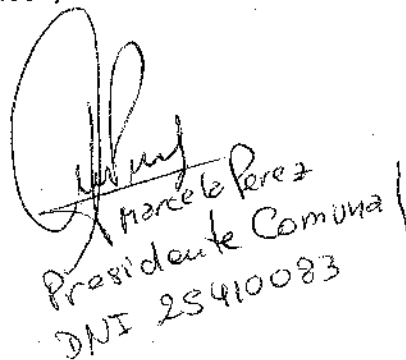 Marcela Perez
Presidente Comunal
DNI 25410083